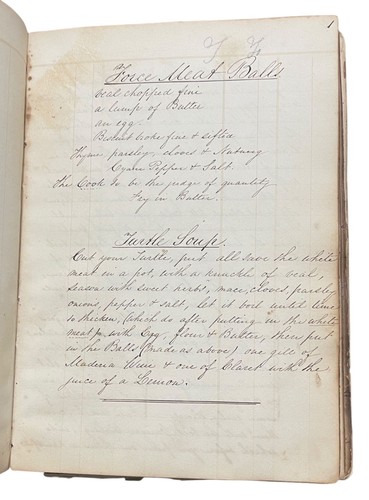 1
Force Meat Balls
Veal chopped fine
a lump of Butter
an egg
Biscuit broke fine & sifted
Thyme, parsley, cloves & Nutmeg
Cyann Pepper & Salt.
The Cook to be the judge of quantity
Fry in Butter.
Turtle Soup.
Cut your Turtle, put all save the white
meat in a pot, with a knuckle of veal,
season with sweet herbs, mace, cloves, parsley,
onions, pepper & salt, let it boil until time
to thicken, (which do after putting in the white
meat) with Egg, flour & Butter, then put
in the Balls (made as above) one gill of
Maderia Wine & one of Claret with the
juice of a Lemon.